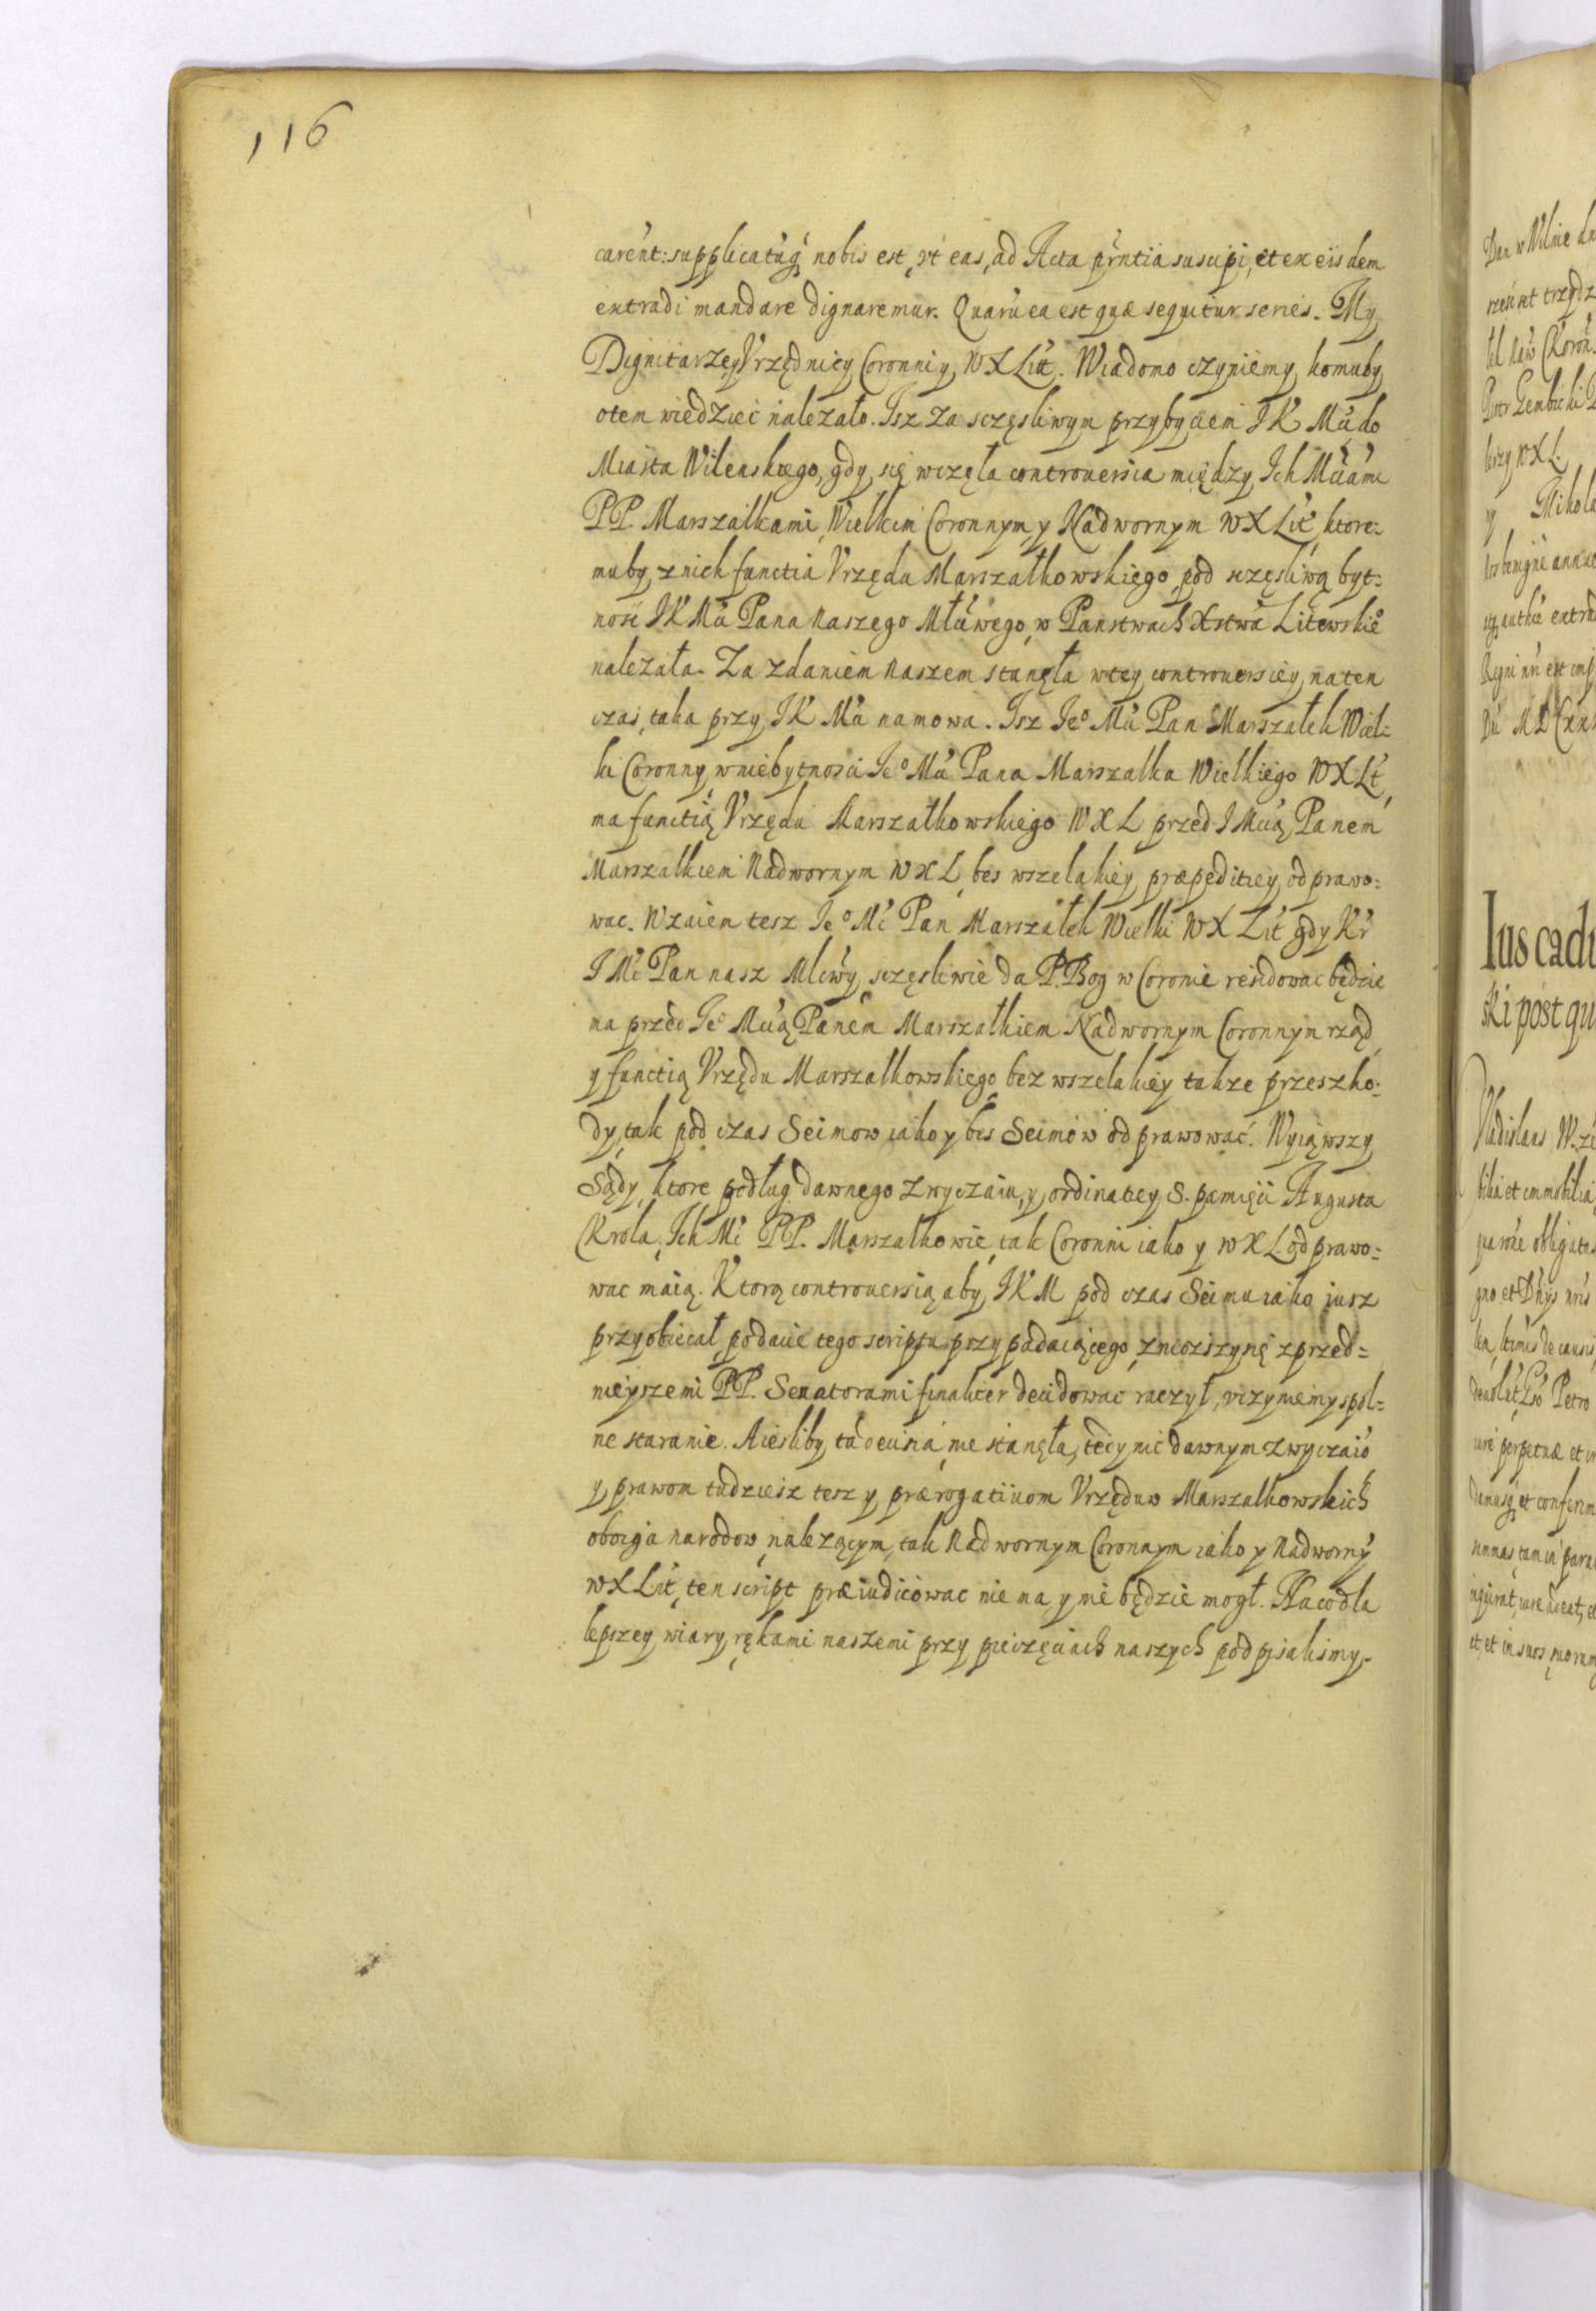 116
carent: supplicatúq nobis est, vt eas, ad Acta prntia suscipi, et ex eisdem
extradi mandare dignaremur. Quarú ea est quæ sequitur series. My
Dignitarze y Vrzędnicy Coronni y WX Litt. Wiadomo czyniemy, komuby
otem wiedzieć należało. Isz za sczęsliwym przybyciem JK Mci do
Miasta Wilenskiego, gdy się wczęła controuersia między Ich Mciami
PP. Marszałkami, Wielkim Coronnym, y Nadwornym WX Lit, ktore=
muby z nich functia Vrzędu Marszałkowskiego, pod sczęsliwą byt=
nosc JK Mci Pana Naszego Młciwego, w Panstwach Xstwa Litewskieo
należała. Za zdaniem Naszem stanęła w tey controuersiey, na ten
czas, taka przy JK Mci namowa. Isz Jeo Mci Pan Marszałek Wiel=
ki Coronny, w niebytnosci Jeo Mci Pana Marszałka Wielkiego WX Lt,
ma functią Vrzędu Marszałkowskiego WXL przed J Mcią Panem
Marszałkiem Nadwornym WXL, bes wszelakiey præpeditiey, odprawo=
wac. Wzaiem tesz Jeo Mc Pan Marszałek Wielki WX Lit gdy Kr
J Mc Pan nasz Mlciwy, sczęsliwie da P. Bog w Coronie residowac będzie
ma przed Jeo Mcią Panem Marszałkiem Nadwornym Coronnym rząd
y functią Vrzędu Marszałkowskiego, bez wszelakiey takze przeszko=
dy, tak pod czas Seimow iako y bes Seimow odprawować. Wyiąwszy
Sądy, ktore podług dawnego zwyczaiu, y ordinatiey S. pamięci Augusta
Krola, Ich Mc PP. Marszałkowie, tak Coronni iako y WXL odprawo=
wac maią. Ktorą controuersią aby JKM pod czas Seimu iako iusz
przyobiecał, po dacie tego scriptu przypadaiącego, zniozszy się z przed=
nieyszemi PP. Senatorami finaliter decidowac raczył, vczyniemy spol=
ne staranie. A iesliby ta decisia, nie stanęła, tedy nic dawnym zwyczaió
y prawom tudziesz tesz y prærogatiuom Vrzęduw Marszałkowskich
oboiga narodow, nalezącym, tak Nadwornym Coronnym iako y Nadworny
WX Lit, ten script præiudicowac nie ma, y nie będzie mogł. Na co dla
lepszey wiary, rękami naszemi przy pieczęciach naszych podpisalismy.
Dan w Wilnie
Mikola
Ius cadu
ski post qu
Petro